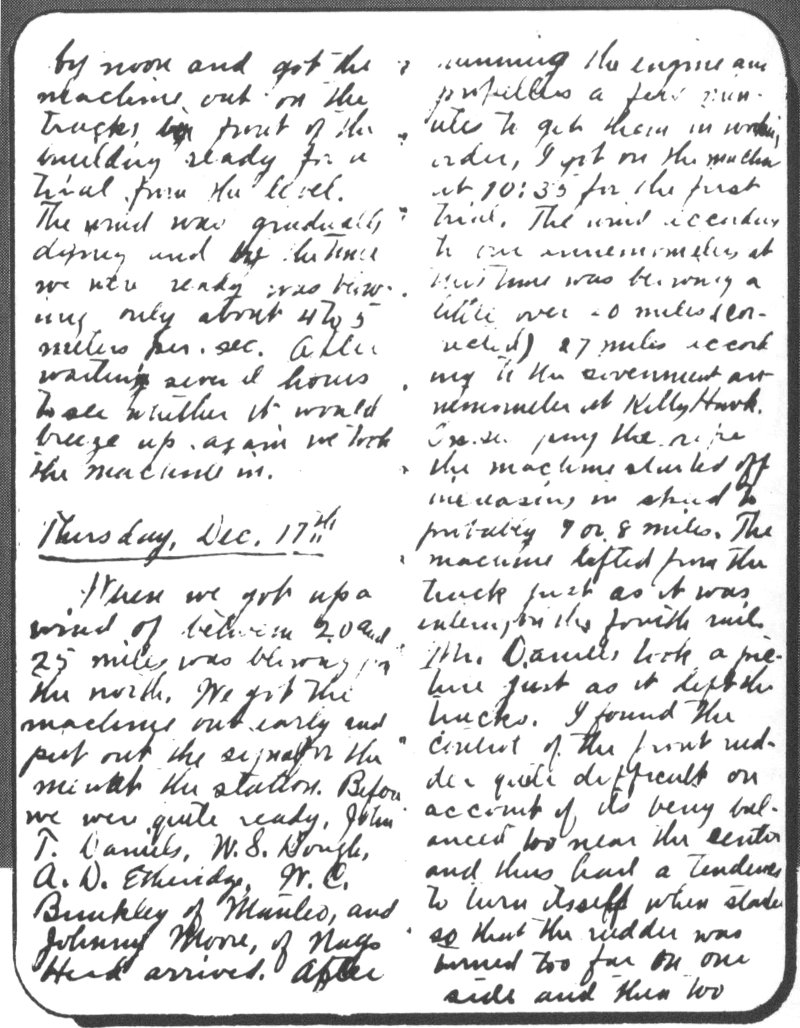 by noon and got the
machine out on the
tracks in front of the
building ready for a
trial from the level.
The wind was gradually
dying and by the time
we were ready was blow-
ing only about 4 to 5
meters per. sec. After
waiting several hours
to see whether it would
breeze up again we took
the machine in.
Thursday, Dec. 17th
When we got up a
wind of between 20 and
25 miles was blowing from
the north. We got the
machine out early and
put out the signal for the
men at the station. Before
we were quite ready, John
T. Daniels, W.S. Dough,
A.D. Etheridge, W.C.
Brinkley of Manteo, and
Johnny Moore, of Nags
Head arrived. After
running the engine and
propellers a few min-
utes to get them in working
order, I got on the machine
at 10:35 for the first
trial. The wind according
to our annemometers at
this time was blowing a
little over 20 miles (cor-
rected) 27 miles accord
ing to the Government an-
nemometer at Kitty Hawk.
On slipping the rope
the machine started off
increasing in speed to
probably 7 or 8 miles. The
machine lifted from the
truck just as it was
entering on the fourth rail.
Mr. Daniels took a pic-
ture just as it left the
tracks. I found the
control of the front rud-
der quite difficult on
account of its being bal-
anced too near the center
and thus had a tendency
to turn itself when started
so that the rudder was
turned too far on one
side and then too